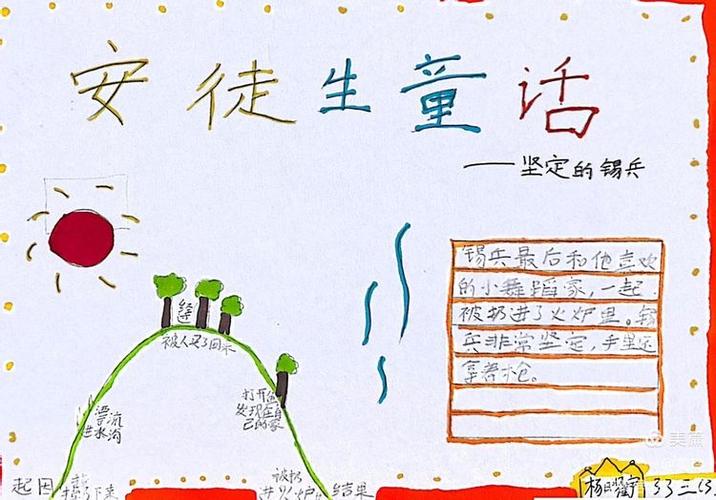 安徒生童话
——坚定的锡兵
锡兵最后和他喜欢
的小舞蹈家，一起
被扔进了火炉里。锡
兵非常坚定，手里还
拿着枪。
经过
被人买了回来
打开鱼
发现在自
己的家
漂流
进水沟
起因
掉了下来
被扔
进火炉
结果
美篇